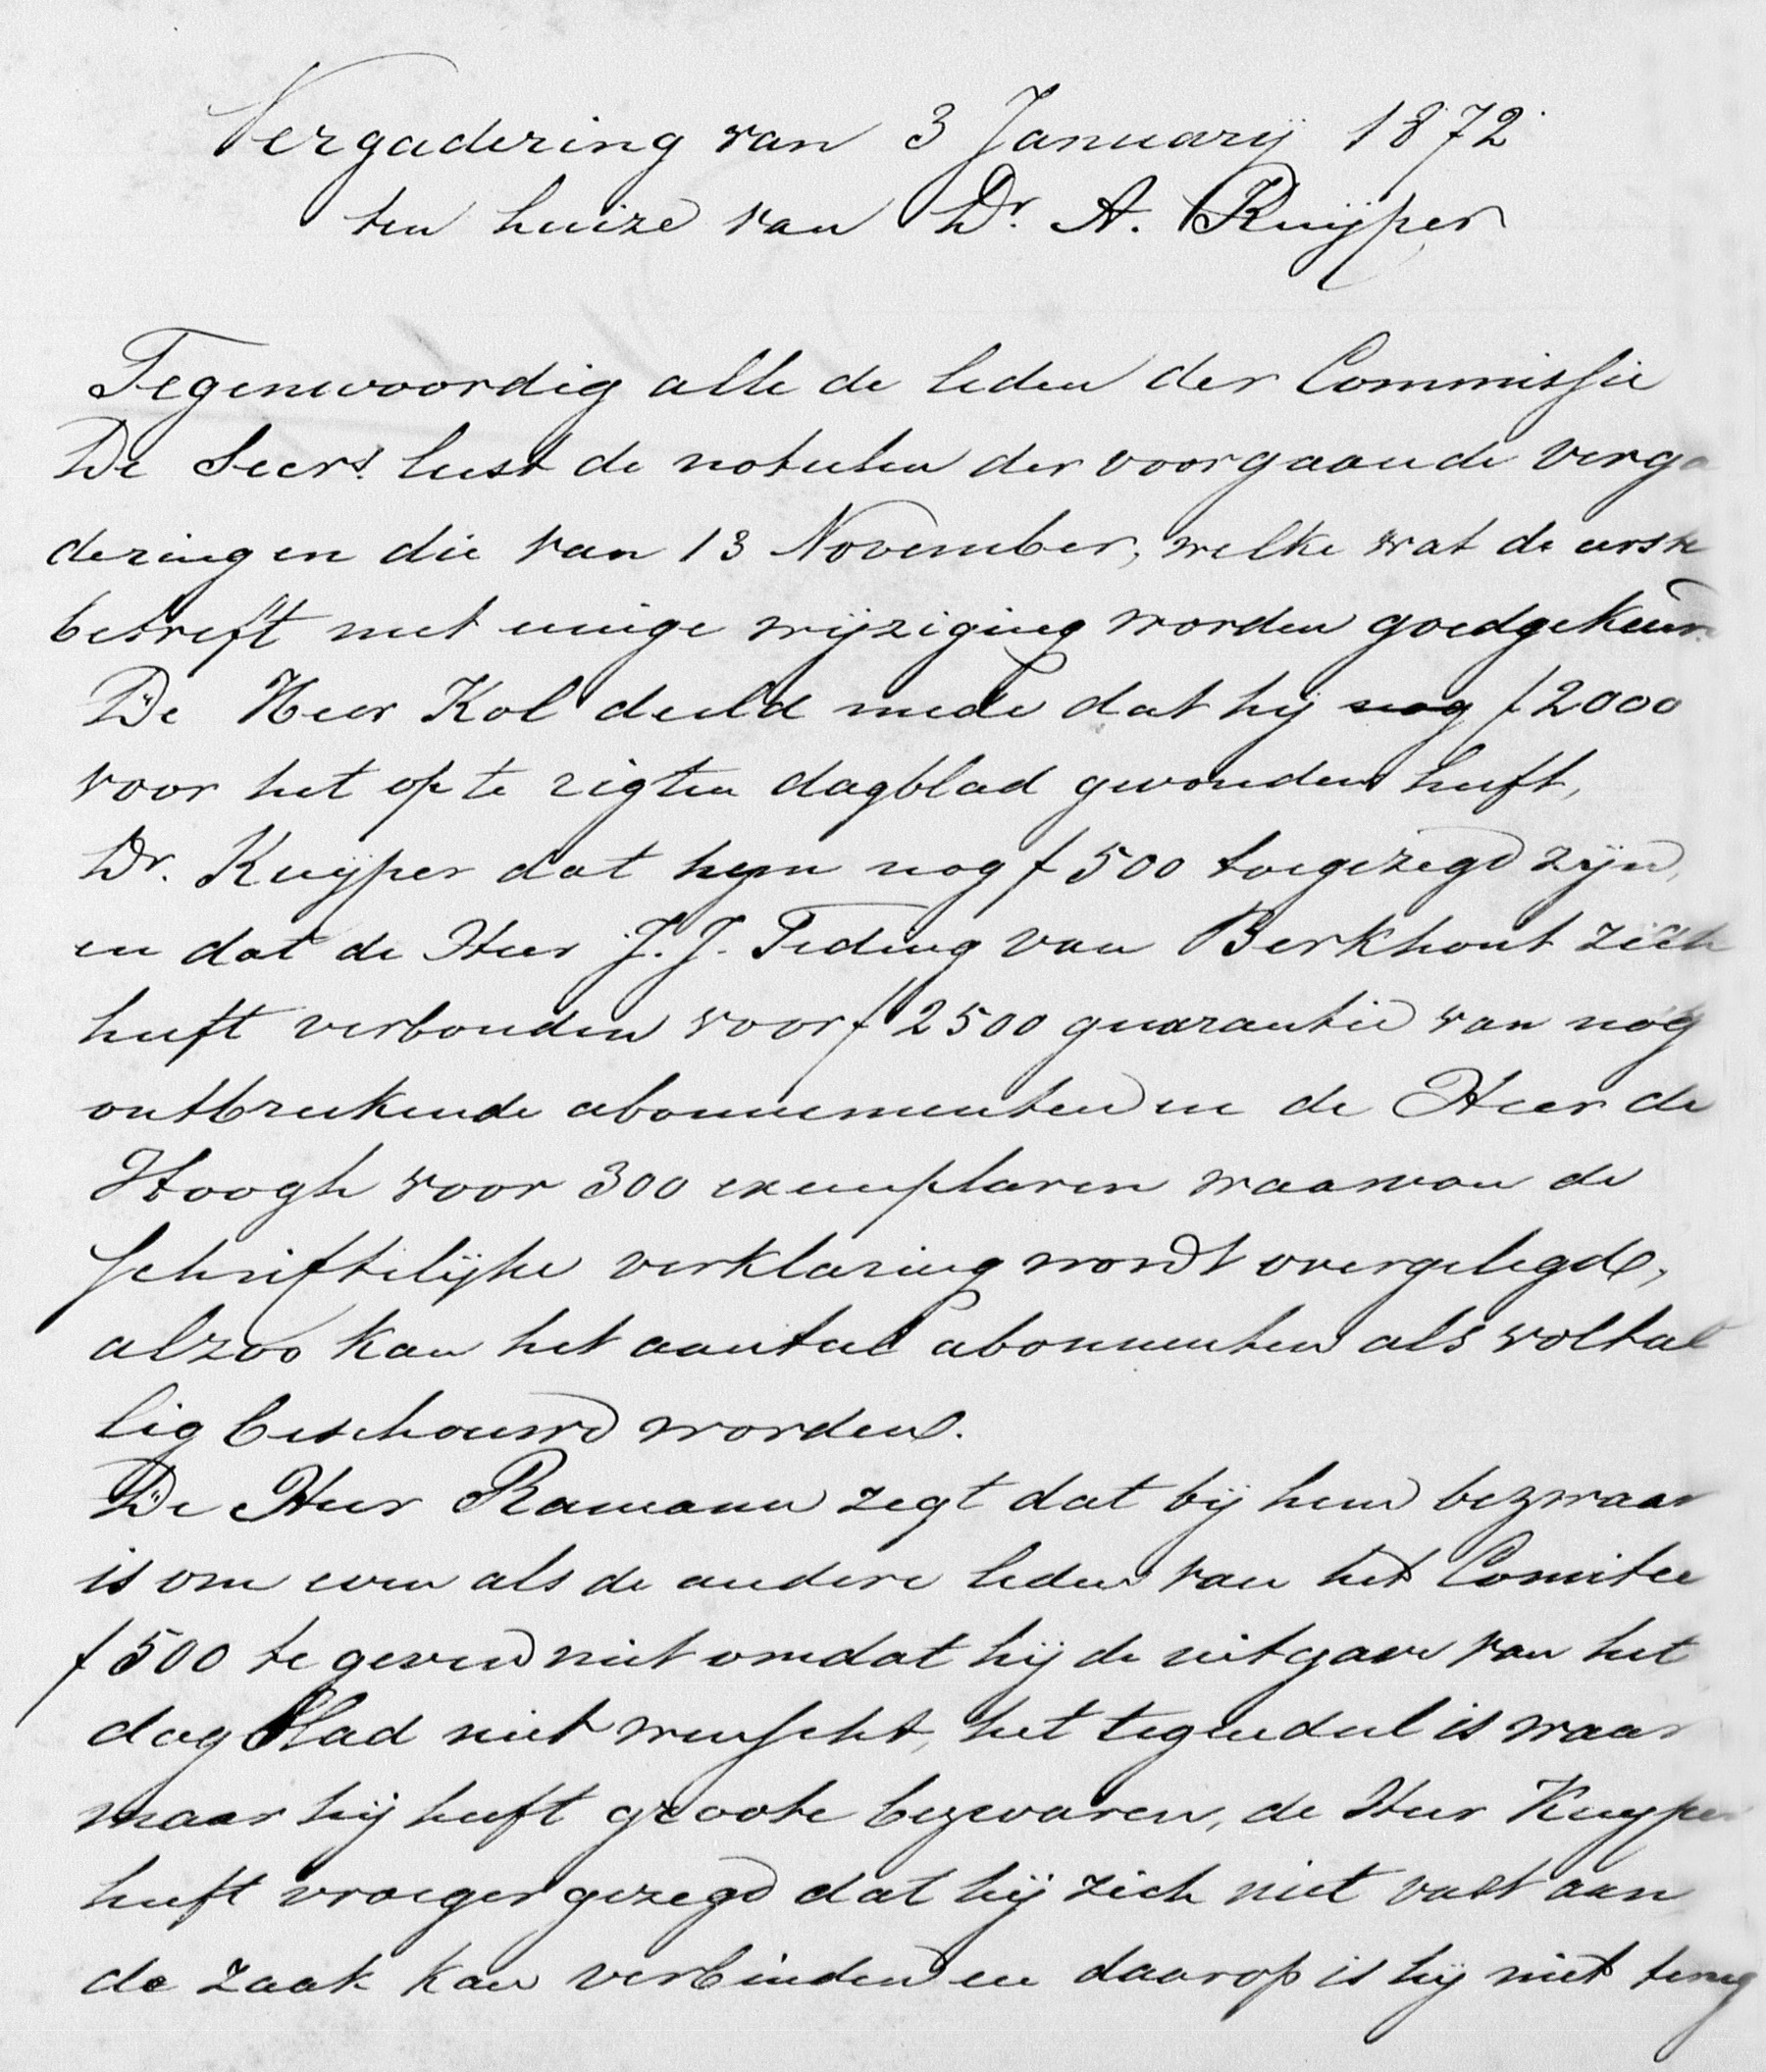 Vergadering van 3 Januarij 1872
ten huize van Dr. A. Kuijper
Tegenwoordig alle de leden der Commissie
De Secrs. leest de notulen der voorgaande verga
dering en die van 13 November, welke wat de eerste
betreft met eenige wijziging worden goedgekeur
De Heer Kol deeld mede dat hij nog f 2000
voor het op te rigten dagblad gevonden heeft,
Dr. Kuijper dat hem nog f 500 toegezegd zijn,
en dat de Heer J. J. Teding van Berkhout zich
heeft verbonden voor f 2500 guarantie van nog
ontbrekende abonnementen en de Heer de
Hoogh voor 300 exemplaren waarvan de
schriftelijke verklaring wordt overgelegd,
alzoo kan het aantal abonnenten als voltal
lig beschouwd worden.
De Heer Ramann zegt dat bij hem bezwaar
is om even als de andere leden van het Comitee
f 500 te geven niet omdat hij de uitgave van het
dagblad niet wenscht, het tegendeel is waar
maar hij heeft groote bezwaren, de Heer Kuyper
heeft vroeger gezegd dat hij zich niet vast aan
de zaak kan verbinden en daarop is hij niet terug